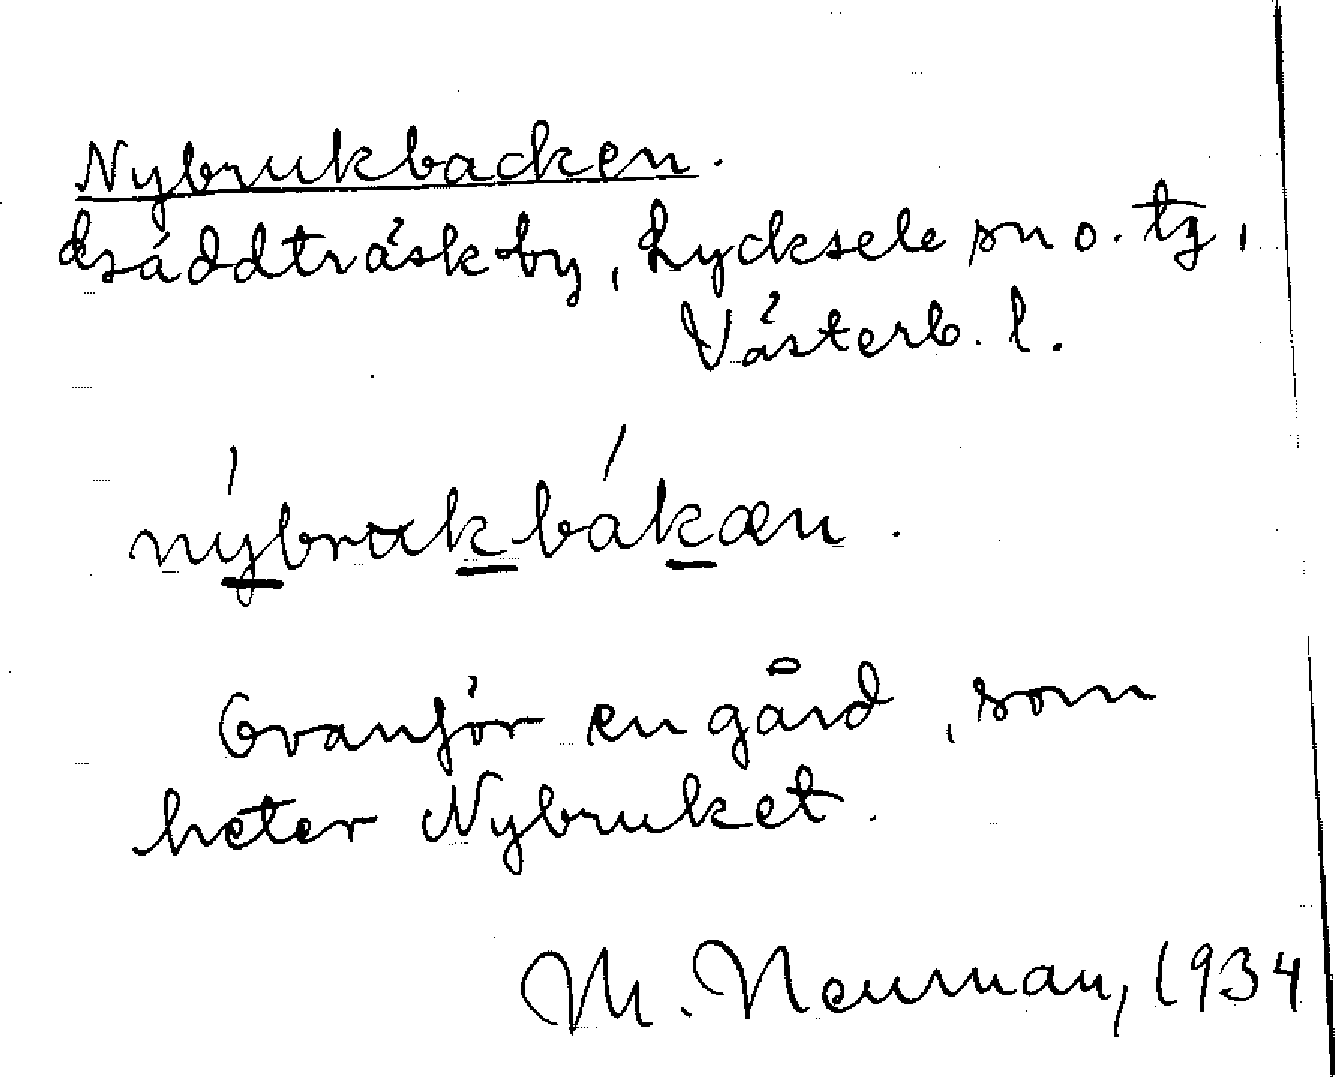 Nybrukbacken.
Gäddträsk by, Lycksele sn o. tg,
Västerb. l.
nýbrukbákæn.
Ovanför en gård, som
heter Nybruket.
M. Neuman, 1934